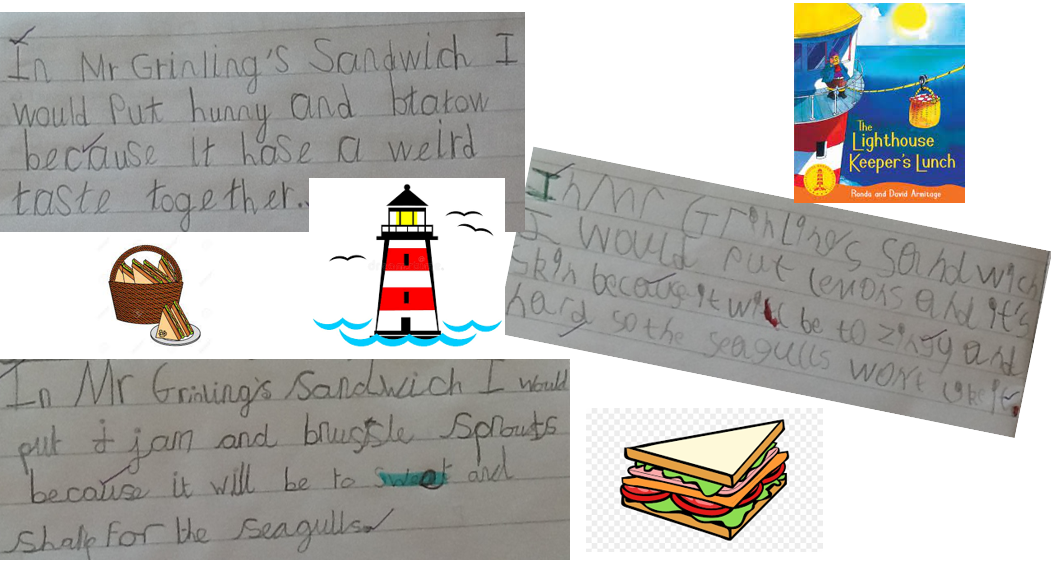 In Mr Grinling's Sandwich I
would Put hunny and btatow
because It hase a weird
taste together.
The
Lighthouse
Keeper's Lunch
Ronda and David Armitage
In Mr Grinling's sandwich
I would put lemons and it's
skin because it will be to zingy and
hard so the seagulls wont like it
In Mr Grinling's Sandwich I would
put jam and brussle Sprouts
because it will be to sweet and
sharp For the seagulls